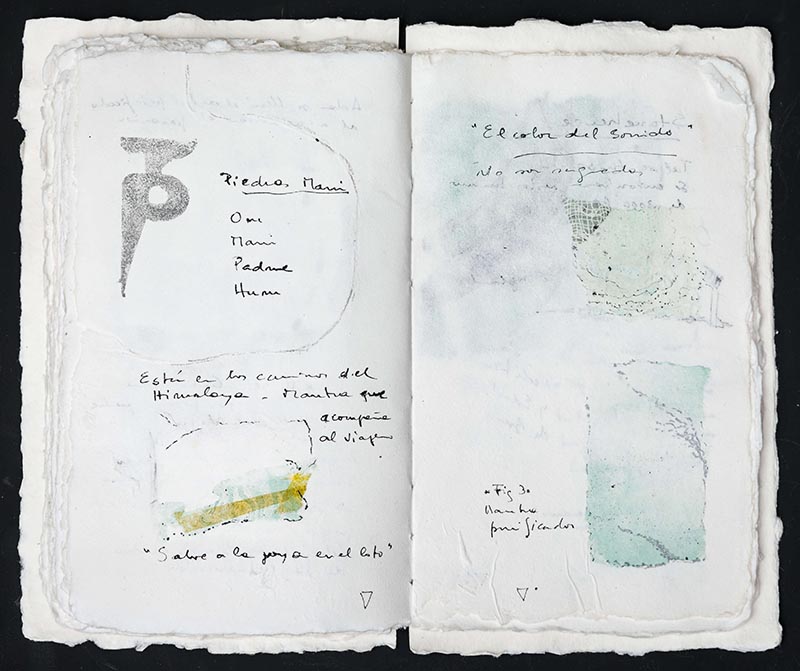 Piedras Mani
Om
Mani
Padme
Hum
Están en los caminos del
Himalaya - Mantra que
acompaña
al viajero
"Salve a la joya en el loto"
"El color del Sonido"
Fig 3
Mantra
purificador